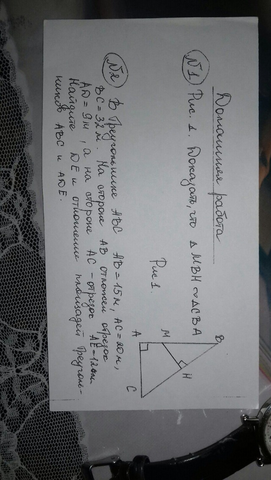 Домашняя работа
№1 Рис. 1. Доказать, что Δ MBH ∾ ΔCBA
Рис 1.
B
M
H
A
C
№2 В треугольнике ABC AB = 15 м, AC = 20 м,
BC = 32 м. На стороне AB отложен отрезок
AD = 9 м, а на стороне AC - отрезок AE = 12 см
Найдите DE и отношение площадей треуголь-
ников ABC и ADE.